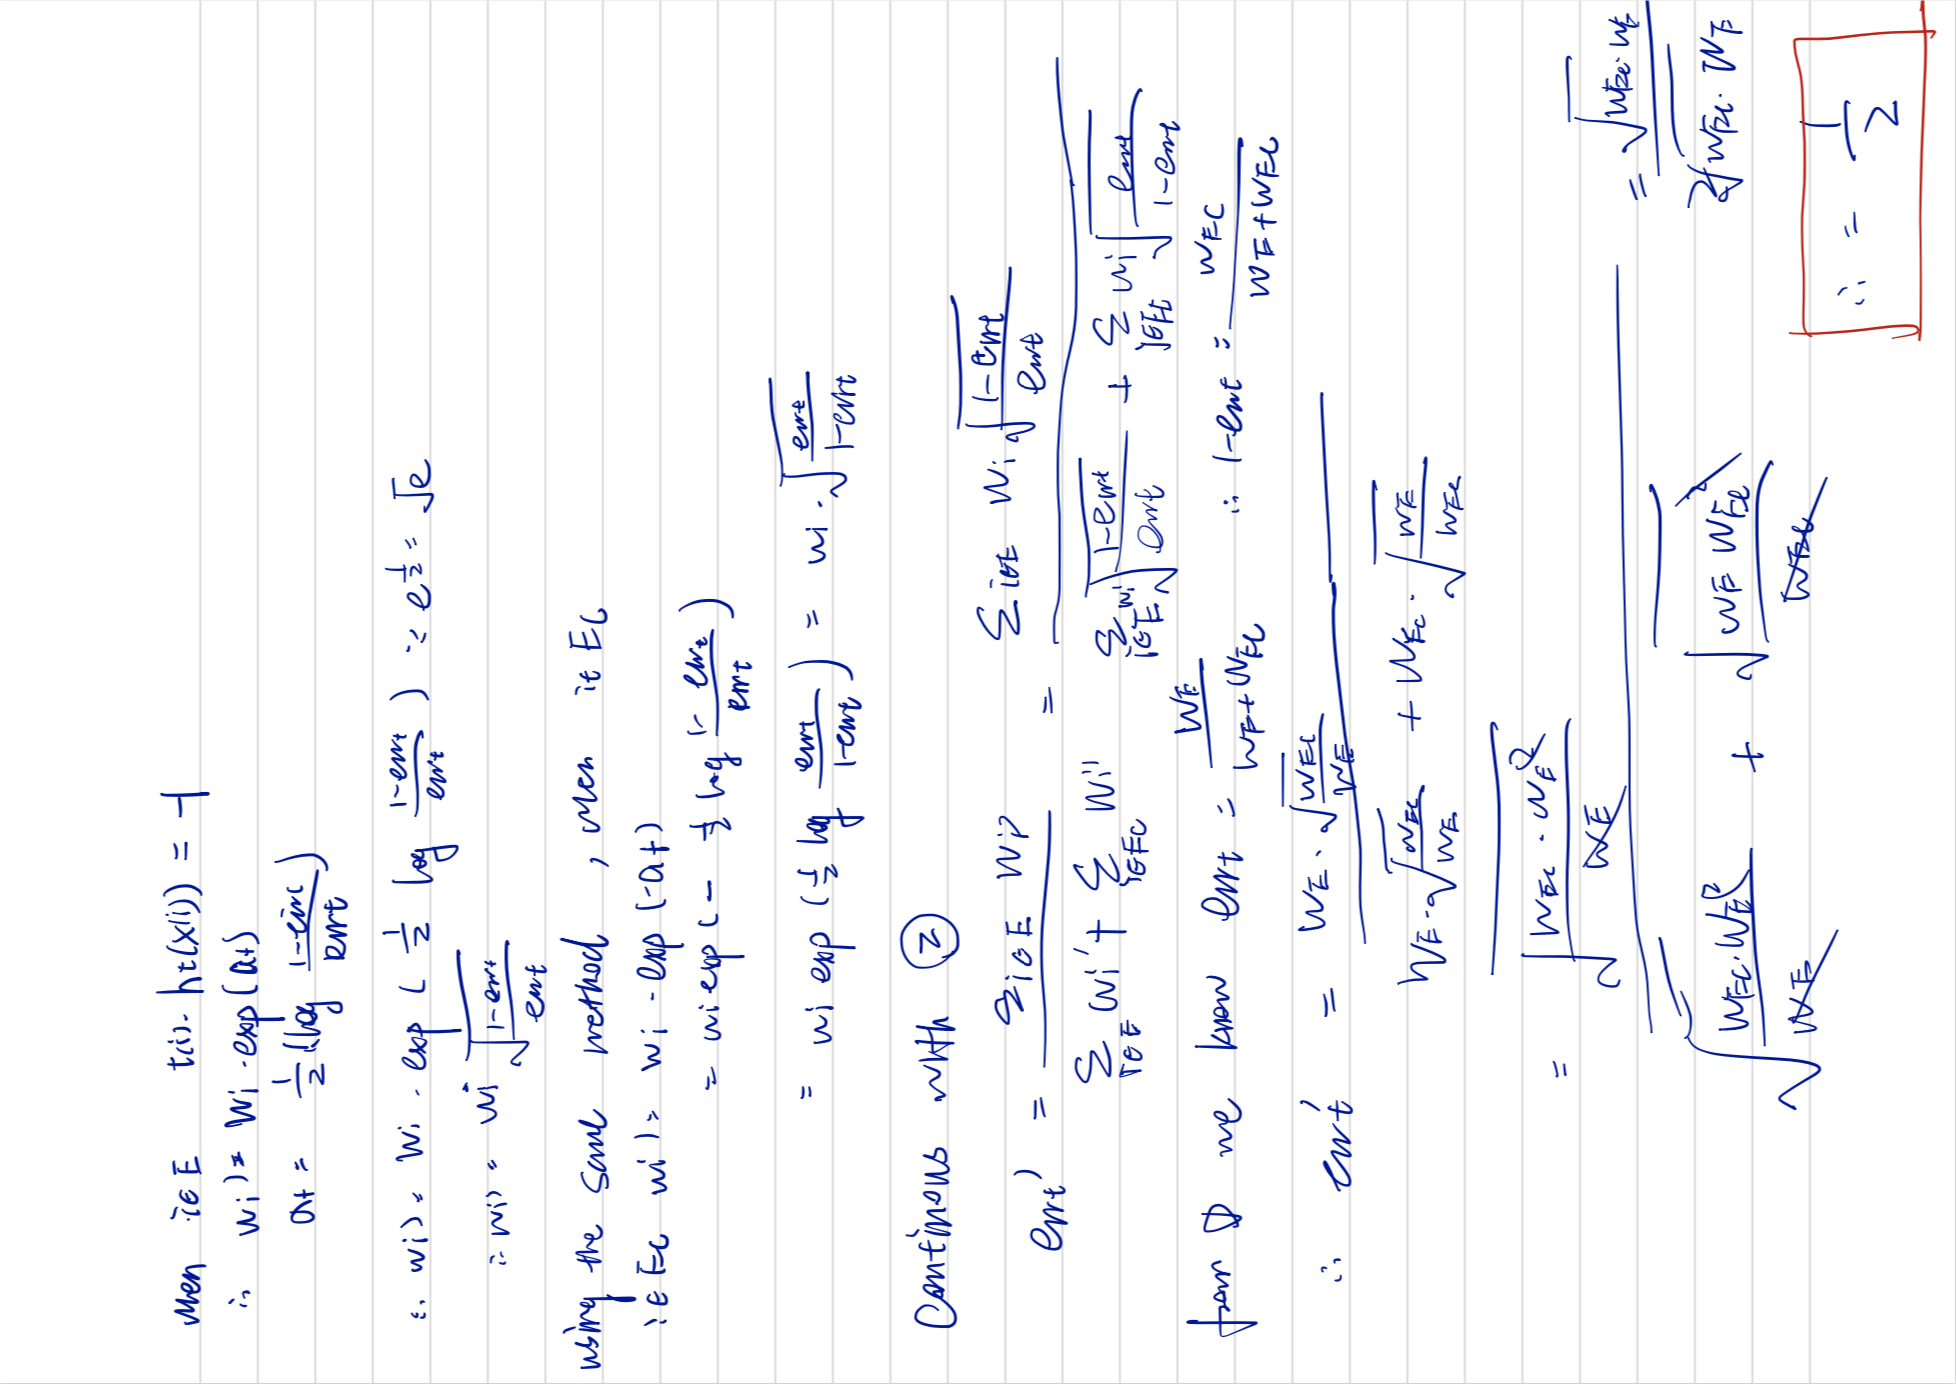 when i∈E t(i)·ht(x(i)) = -1
∴ wi' = wi·exp(at)
at = 1/2 (log (1-errt)/errt)
∴ wi' = wi·exp(1/2 log (1-errt)/errt) ∵ e^(1/2) = √e
∴ wi' = wi √((1-errt)/errt)
using the same method, when i∈Ec
i∈Ec wi' = wi·exp(-at)
= wi exp(-1/2 log (1-errt)/errt)
= wi exp(1/2 log errt/(1-errt)) = wi·√(errt/(1-errt))
Continous with ②
errt' = Σi∈E wi' / (Σi∈E wi' + Σi∈Ec wi') = Σi∈E wi √((1-errt)/errt) / (Σi∈E wi √((1-errt)/errt) + Σi∈Ec wi √(errt/(1-errt)))
from ① we know errt = WE/(WE+WEc) ∴ 1-errt = WEc/(WE+WEc)
∴ errt' = WE·√(WEc/WE) / (WE·√(WEc/WE) + WEc·√(WE/WEc))
= √(WEc·WE²/WE) / (√(WEc·WE²/WE) + √(WE WEc²/WEc)) = √(WEc·WE) / 2√(WEc·WE)
∴ = 1/2